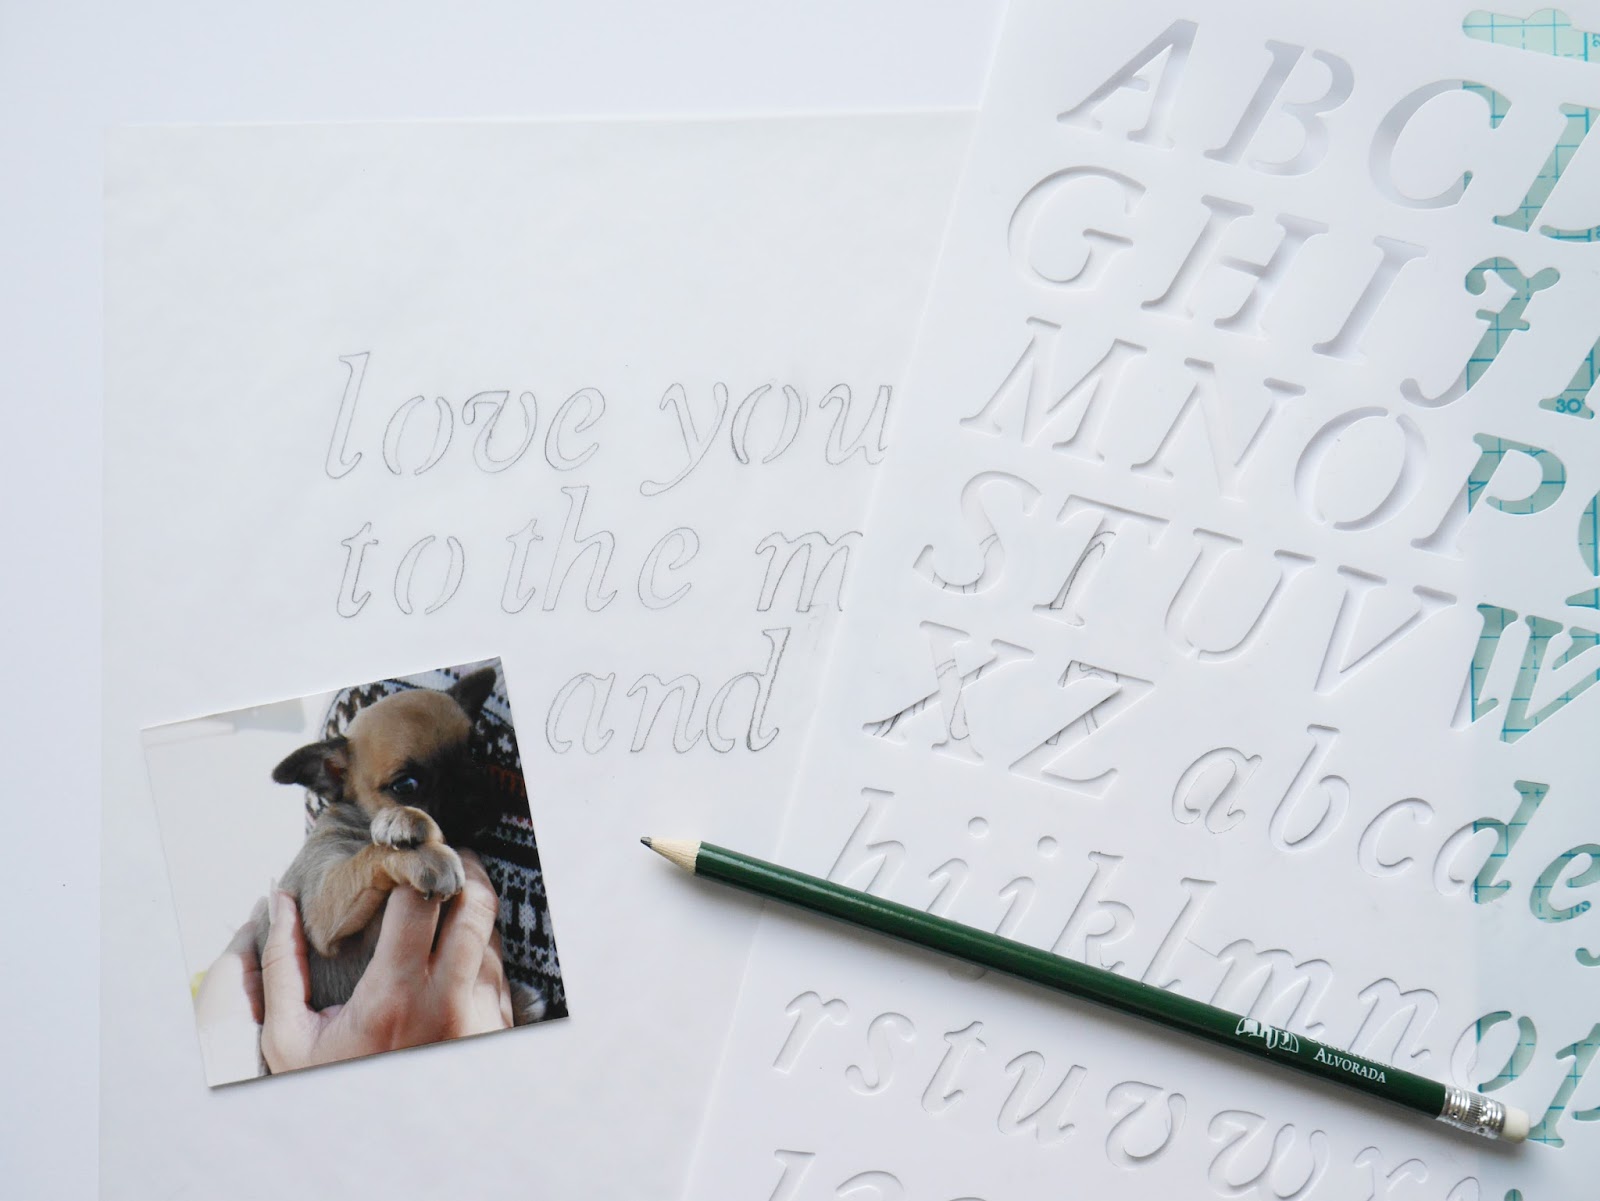 love you
to the m
and
A B C D
G H I J
M N O P
S T U V W
X Z a b c d e
h i j k l m n o p
r s t u v w x
30
ALVORADA